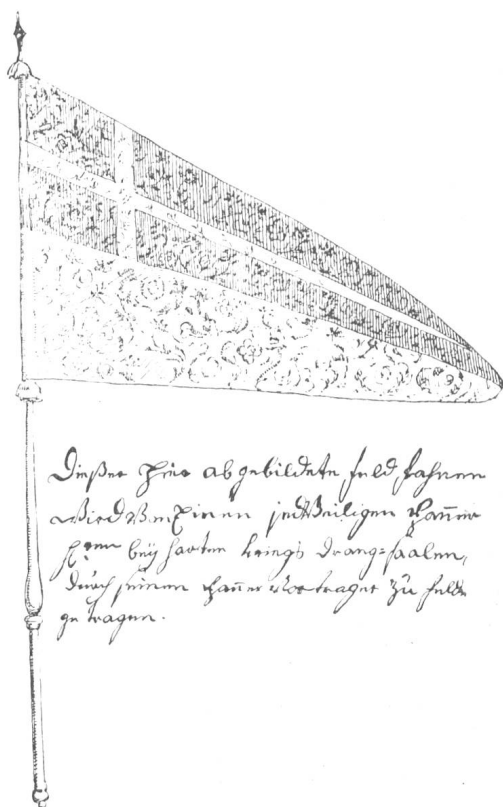 Dießer hier abgebildete feld fahnen
Wird Von Einen jedweiligen Panner
H:ren bey harten kriegs drang=saalen,
durch seinen Panner Vortrager zu felde
getragen.